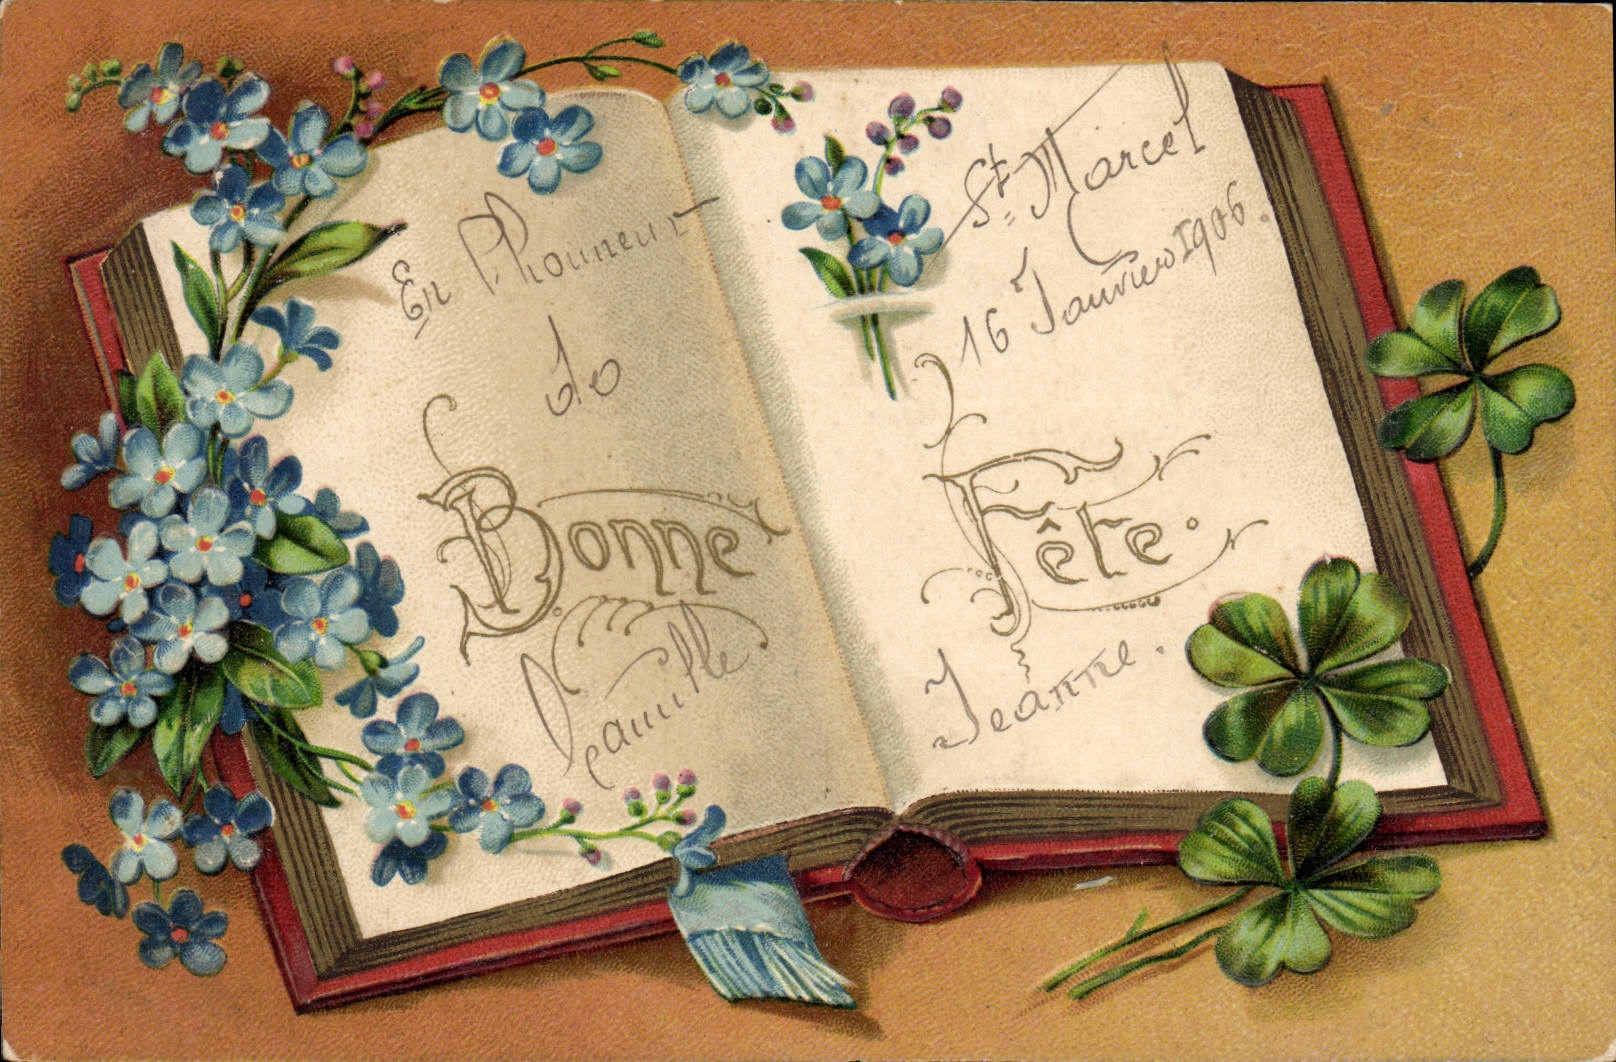 En l'honneur
de
Bonne
St Marcel
16 Janvier 1906.
Fête.
Jeanne.